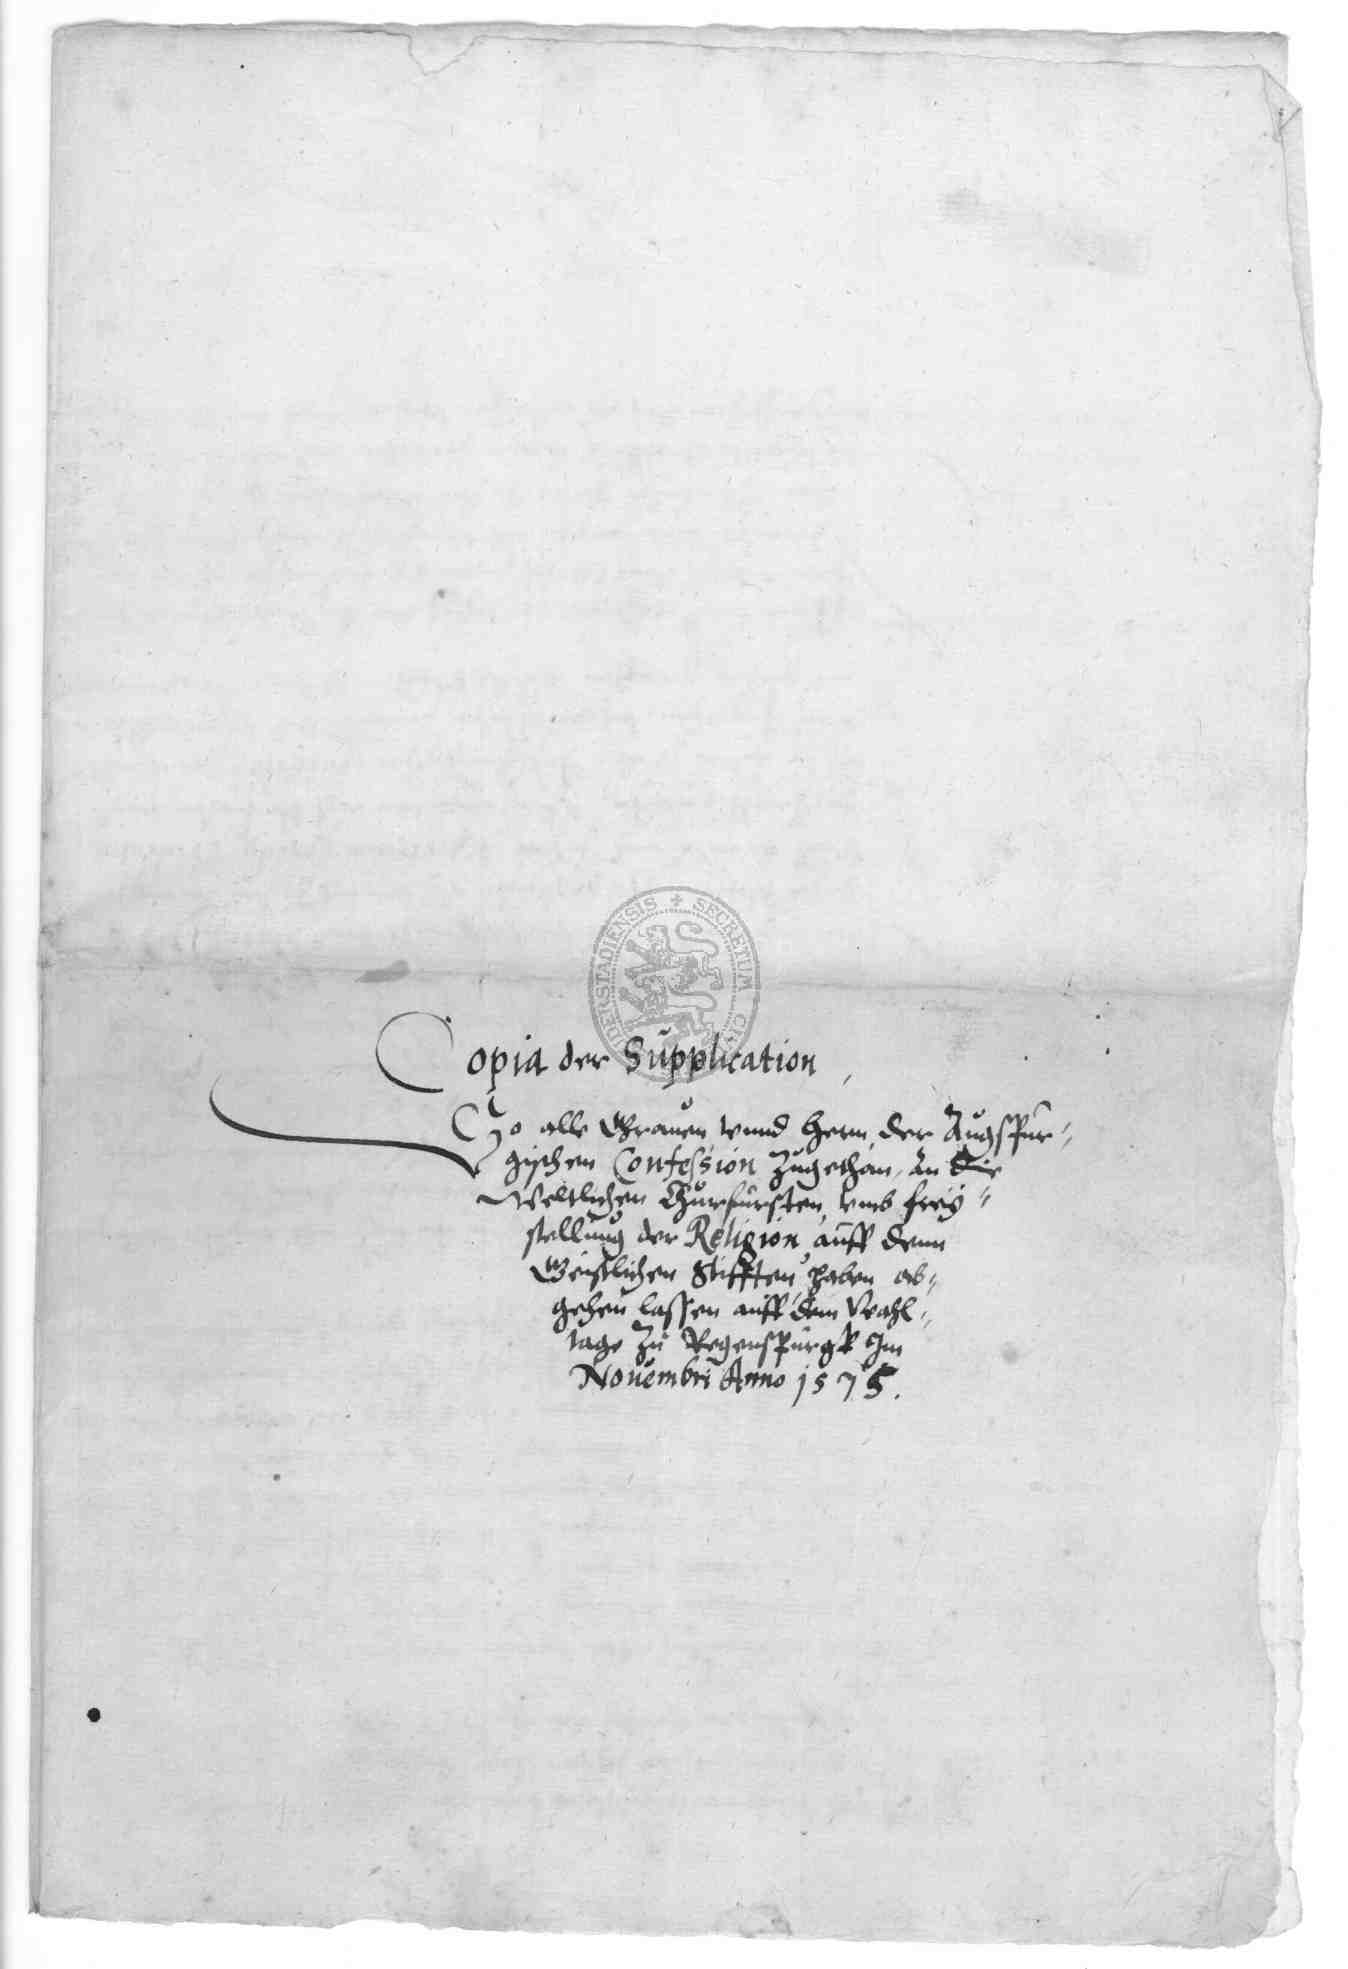 Copia der Supplication,
So alle Grauen vnnd Herrn der Augspur=
gischen Confession zugethan, an die
Weltlichen Churfursten, vmb frey=
stellung der Religion auff denn
Geistlichen Stifften, haben ab=
gehen lassen auff dem Wahl=
tage zu Regenspurgk Im
Nouembri Anno 1575.
DERSTADIENSIS + SECRETUM CI